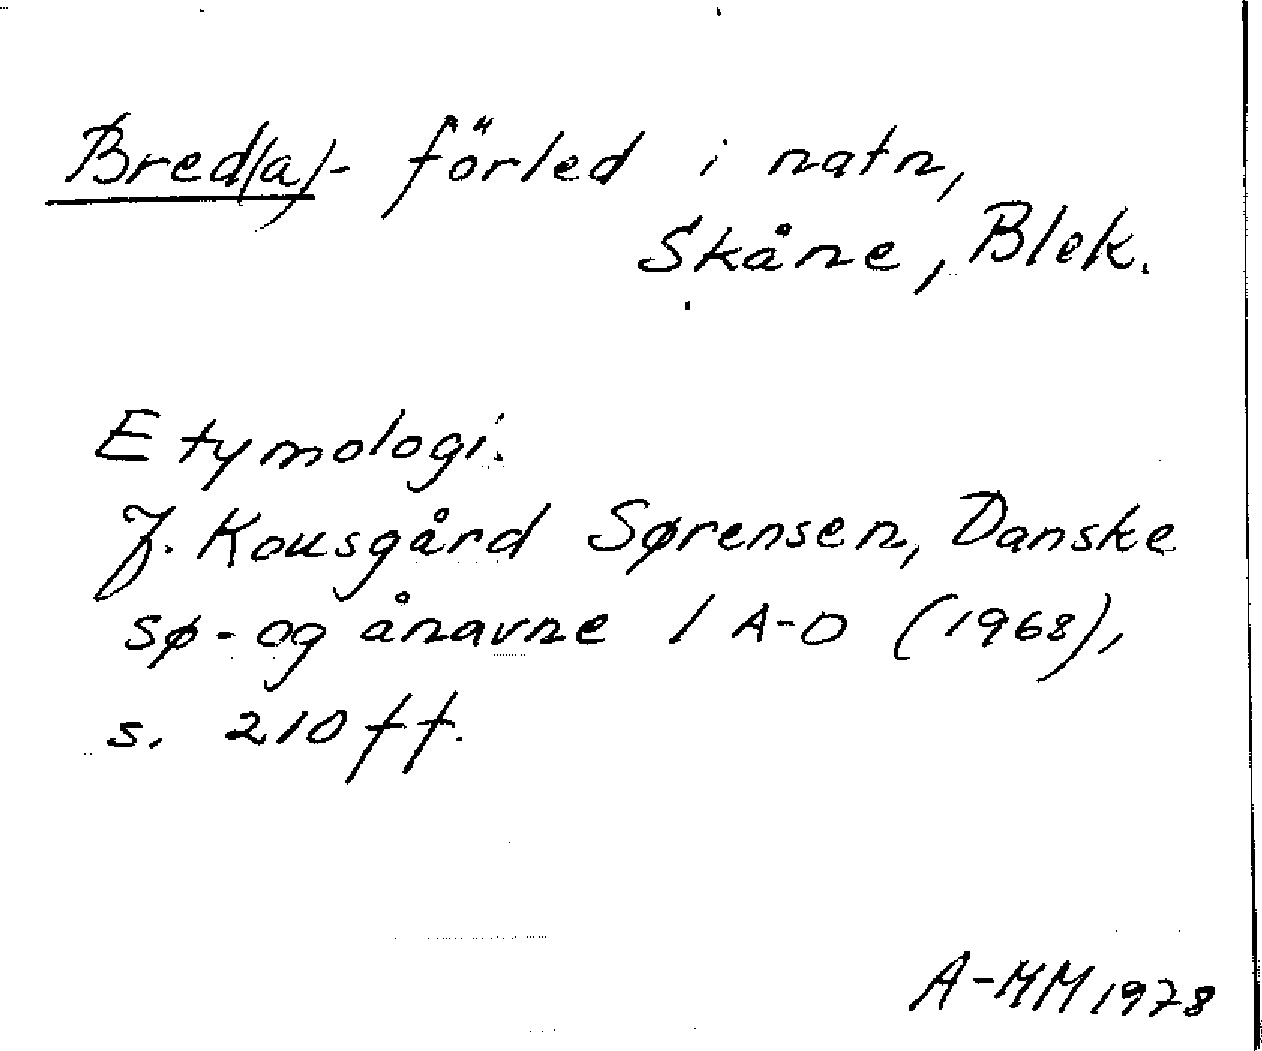 Bred(a)- förled i natn,
Skåne, Blek.
Etymologi.
J. Kousgård Sørensen, Danske
sø- og ånavne 1 A-D (1968),
s. 210 ff.
A-MM 1978